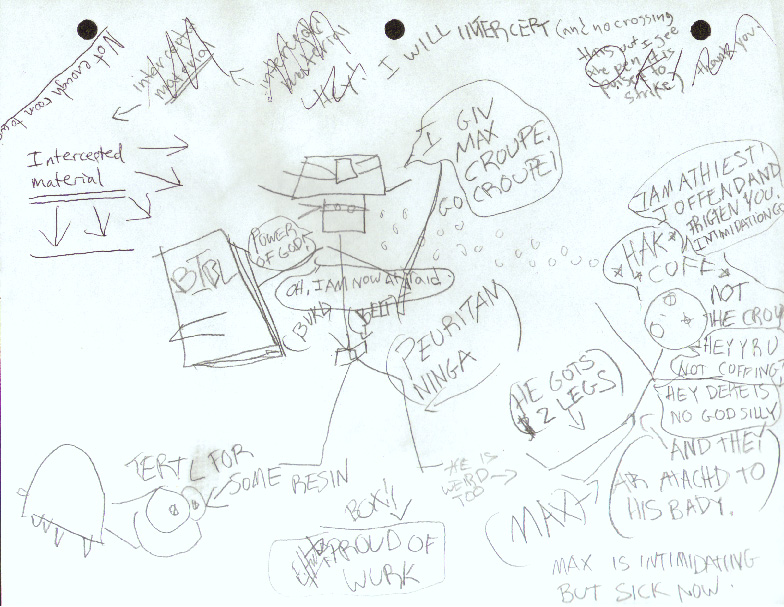 I WILL INTERCERT (and no crossing
this out I see
the pen. It is
poised to
strike)
thank you.
Not enough room to
intercept
material
intercept
material
Intercepted
material
I GIV
MAX
CROUPE.
CROUPE!
GO
POWER
OF GOD!
BIBL
OH, I AM NOW AFRAID.
BUKD
BELT
PEURITAN
NINGA
I AM ATHIEST!
I OFFEND AND
FRIGTEN YOU!
INTIMIDATING
HAK
COFF
NOT
THE CROU
HEY Y R U
NOT COFFING?
HEY DERE IS
NO GOD SILLY
HE GOTS
2 LEGS
AND THEY
AR ATACHD TO
HIS BADY.
HE IS
WERD
TOO
MAX
TERTL FOR
SOME RESIN
BOX!
PROUD OF
WURK
MAX IS INTIMIDATING
BUT SICK NOW.